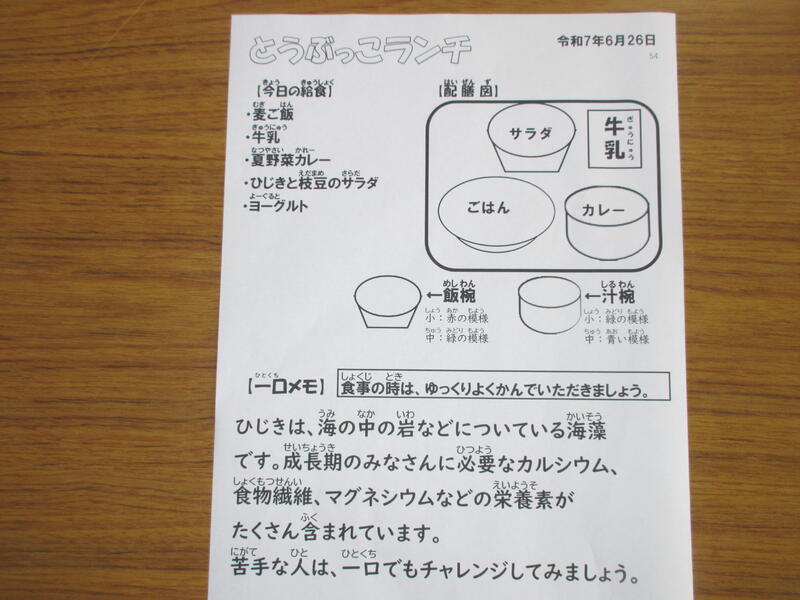 とうぶっこランチ
令和7年6月26日
54
【今日の給食】
・麦ご飯
・牛乳
・夏野菜カレー
・ひじきと枝豆のサラダ
・ヨーグルト
【配膳図】
サラダ
牛乳
ごはん
カレー
←飯椀
小：赤の模様
中：緑の模様
←汁椀
小：緑の模様
中：青い模様
【一口メモ】
食事の時は、ゆっくりよくかんでいただきましょう。
ひじきは、海の中の岩などについている海藻
です。成長期のみなさんに必要なカルシウム、
食物繊維、マグネシウムなどの栄養素が
たくさん含まれています。
苦手な人は、一口でもチャレンジしてみましょう。